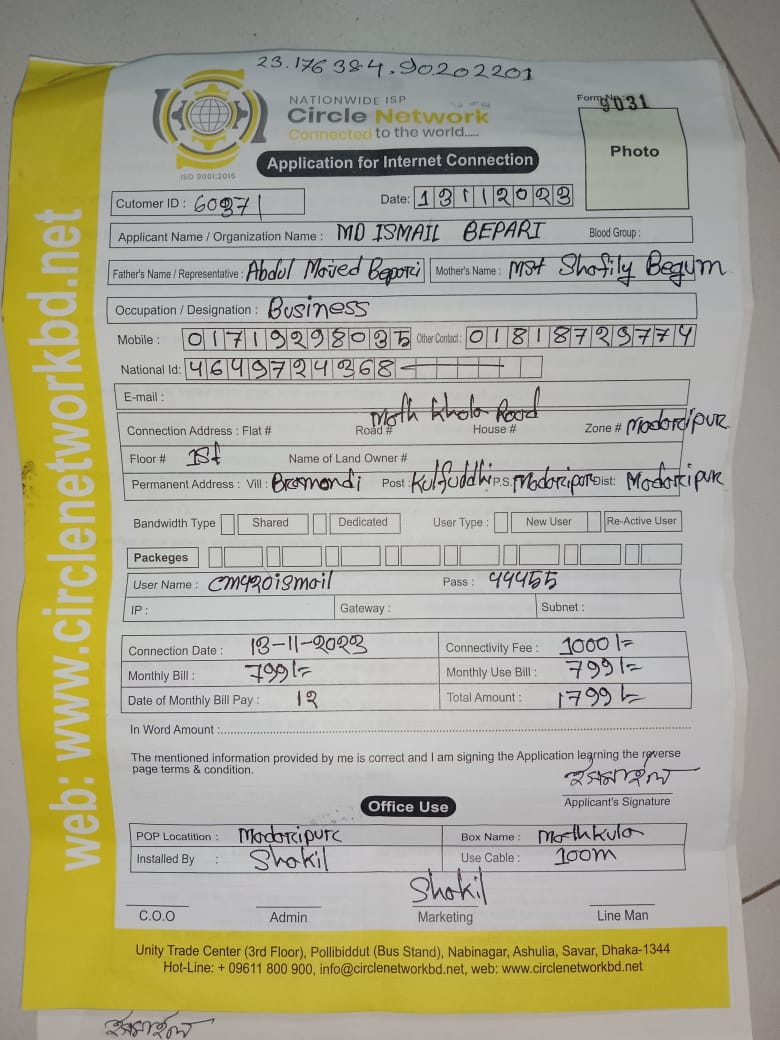 23.176384.90202201
NATIONWIDE ISP
Circle Network
Connected to the world.....
ISO 9001:2015
Form No. 9031
Photo
Application for Internet Connection
Cutomer ID : 60371
Date: 13112023
Applicant Name / Organization Name : MD ISMAIL BEPARI Blood Group :
Father's Name / Representative : Abdul Mojed Bepari Mother's Name : MST Shofily Begum
Occupation / Designation : Business
Mobile : 01719298035 Other Contact : 01818723774
National Id: 4649724368
E-mail :
Connection Address : Flat # Road # Moth Khola Road House # Zone # Modaripur
Floor # 1st Name of Land Owner #
Permanent Address : Vill : Bromondi Post : Kulfuddhi P.S. Modaripor Dist: Modaripur
Bandwidth Type Shared Dedicated User Type : New User Re-Active User
Packeges
User Name : CM420ismail Pass : 44455
IP : Gateway : Subnet :
Connection Date : 13-11-2023 Connectivity Fee : 1000/=
Monthly Bill : 799/= Monthly Use Bill : 799/=
Date of Monthly Bill Pay : 12 Total Amount : 1799/=
In Word Amount :
The mentioned information provided by me is correct and I am signing the Application learning the reverse
page terms & condition.
ইসমাইল
Applicant's Signature
Office Use
POP Locatition : Modaripur Box Name : Mothkula
Installed By : Shakil Use Cable : 100m
Shakil
C.O.O Admin Marketing Line Man
Unity Trade Center (3rd Floor), Pollibiddut (Bus Stand), Nabinagar, Ashulia, Savar, Dhaka-1344
Hot-Line: + 09611 800 900, info@circlenetworkbd.net, web: www.circlenetworkbd.net
web: www.circlenetworkbd.net
ইসমাইল